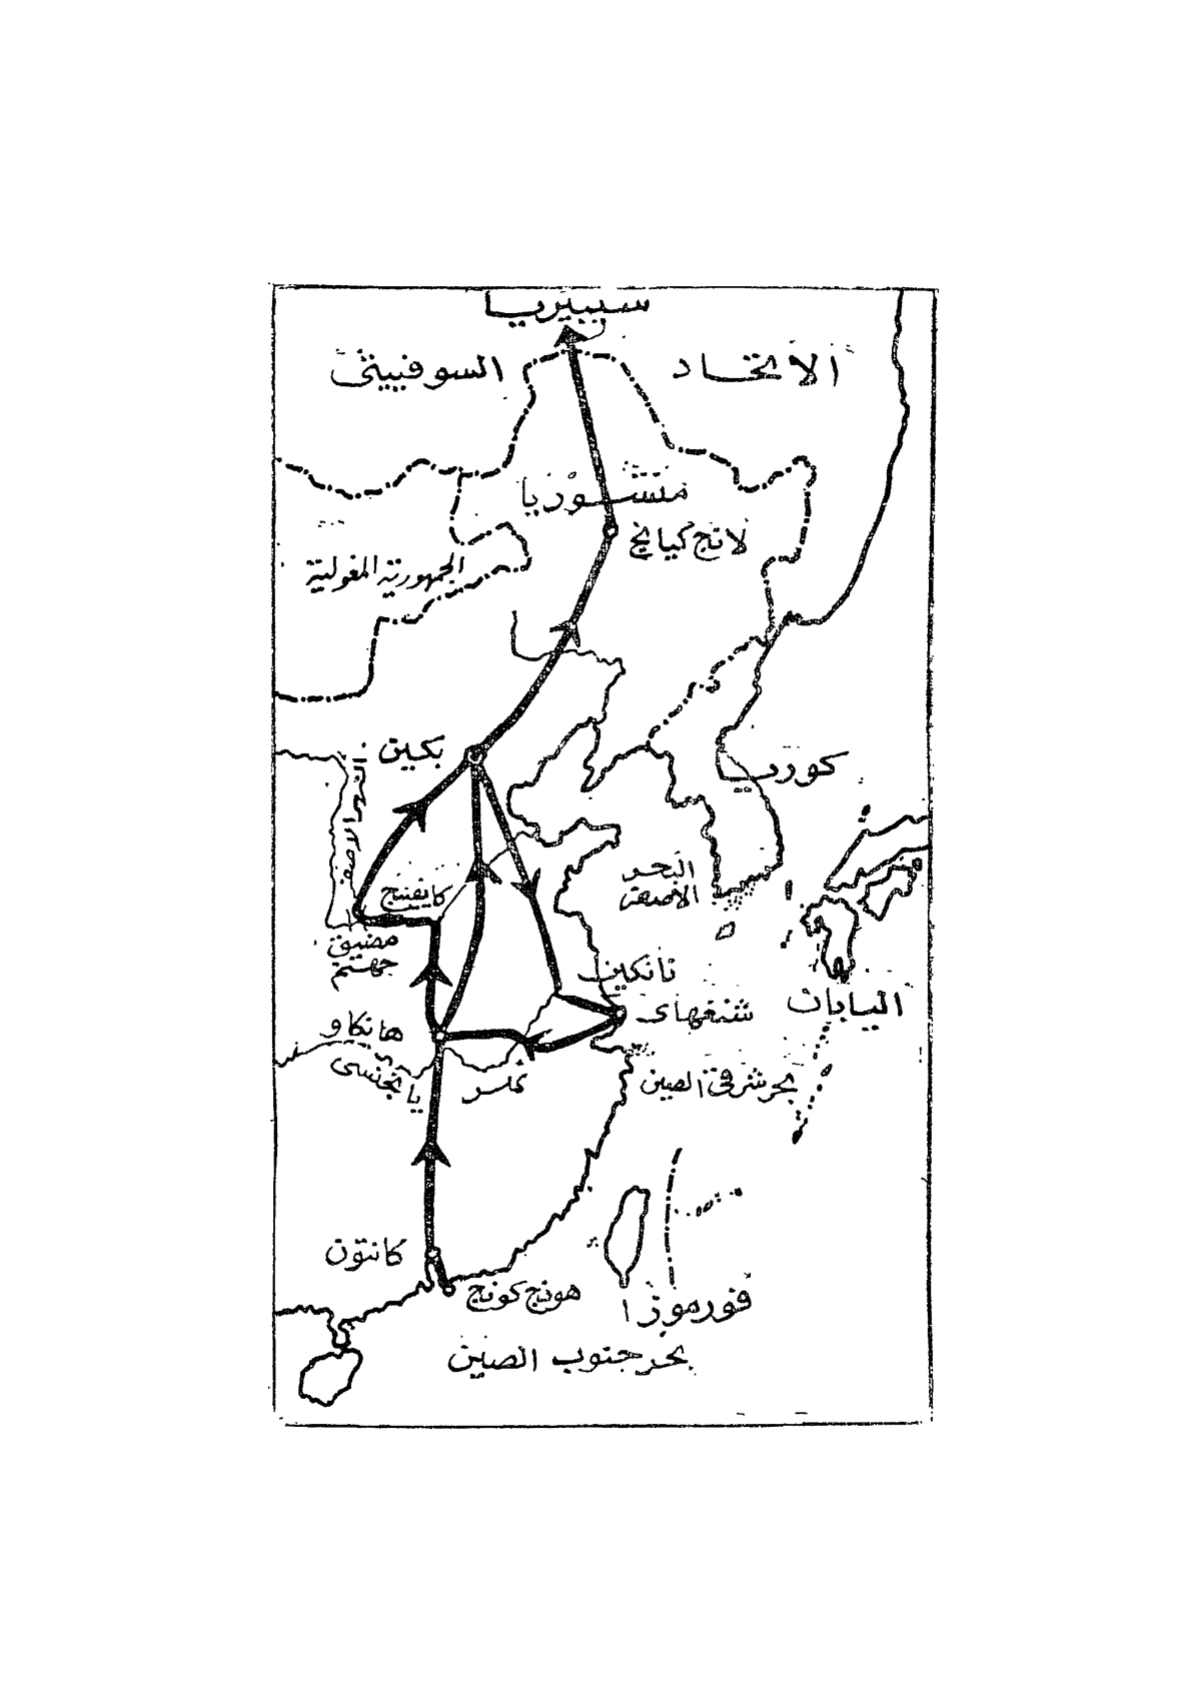 سيبيريا
الاتحاد السوفييتى
منشوريا
لانج كيانج
الجمهورية المغولية
بكين
كوريا
النهر الاصفر
البحر
الاصفر
كايفنج
مضيق
جهنم
نانكين
شنغهاى
اليابان
هانكاو
نهر يانجتسى
بحر شرقى الصين
كانتون
هونج كونج
فورموزا
بحر جنوب الصين